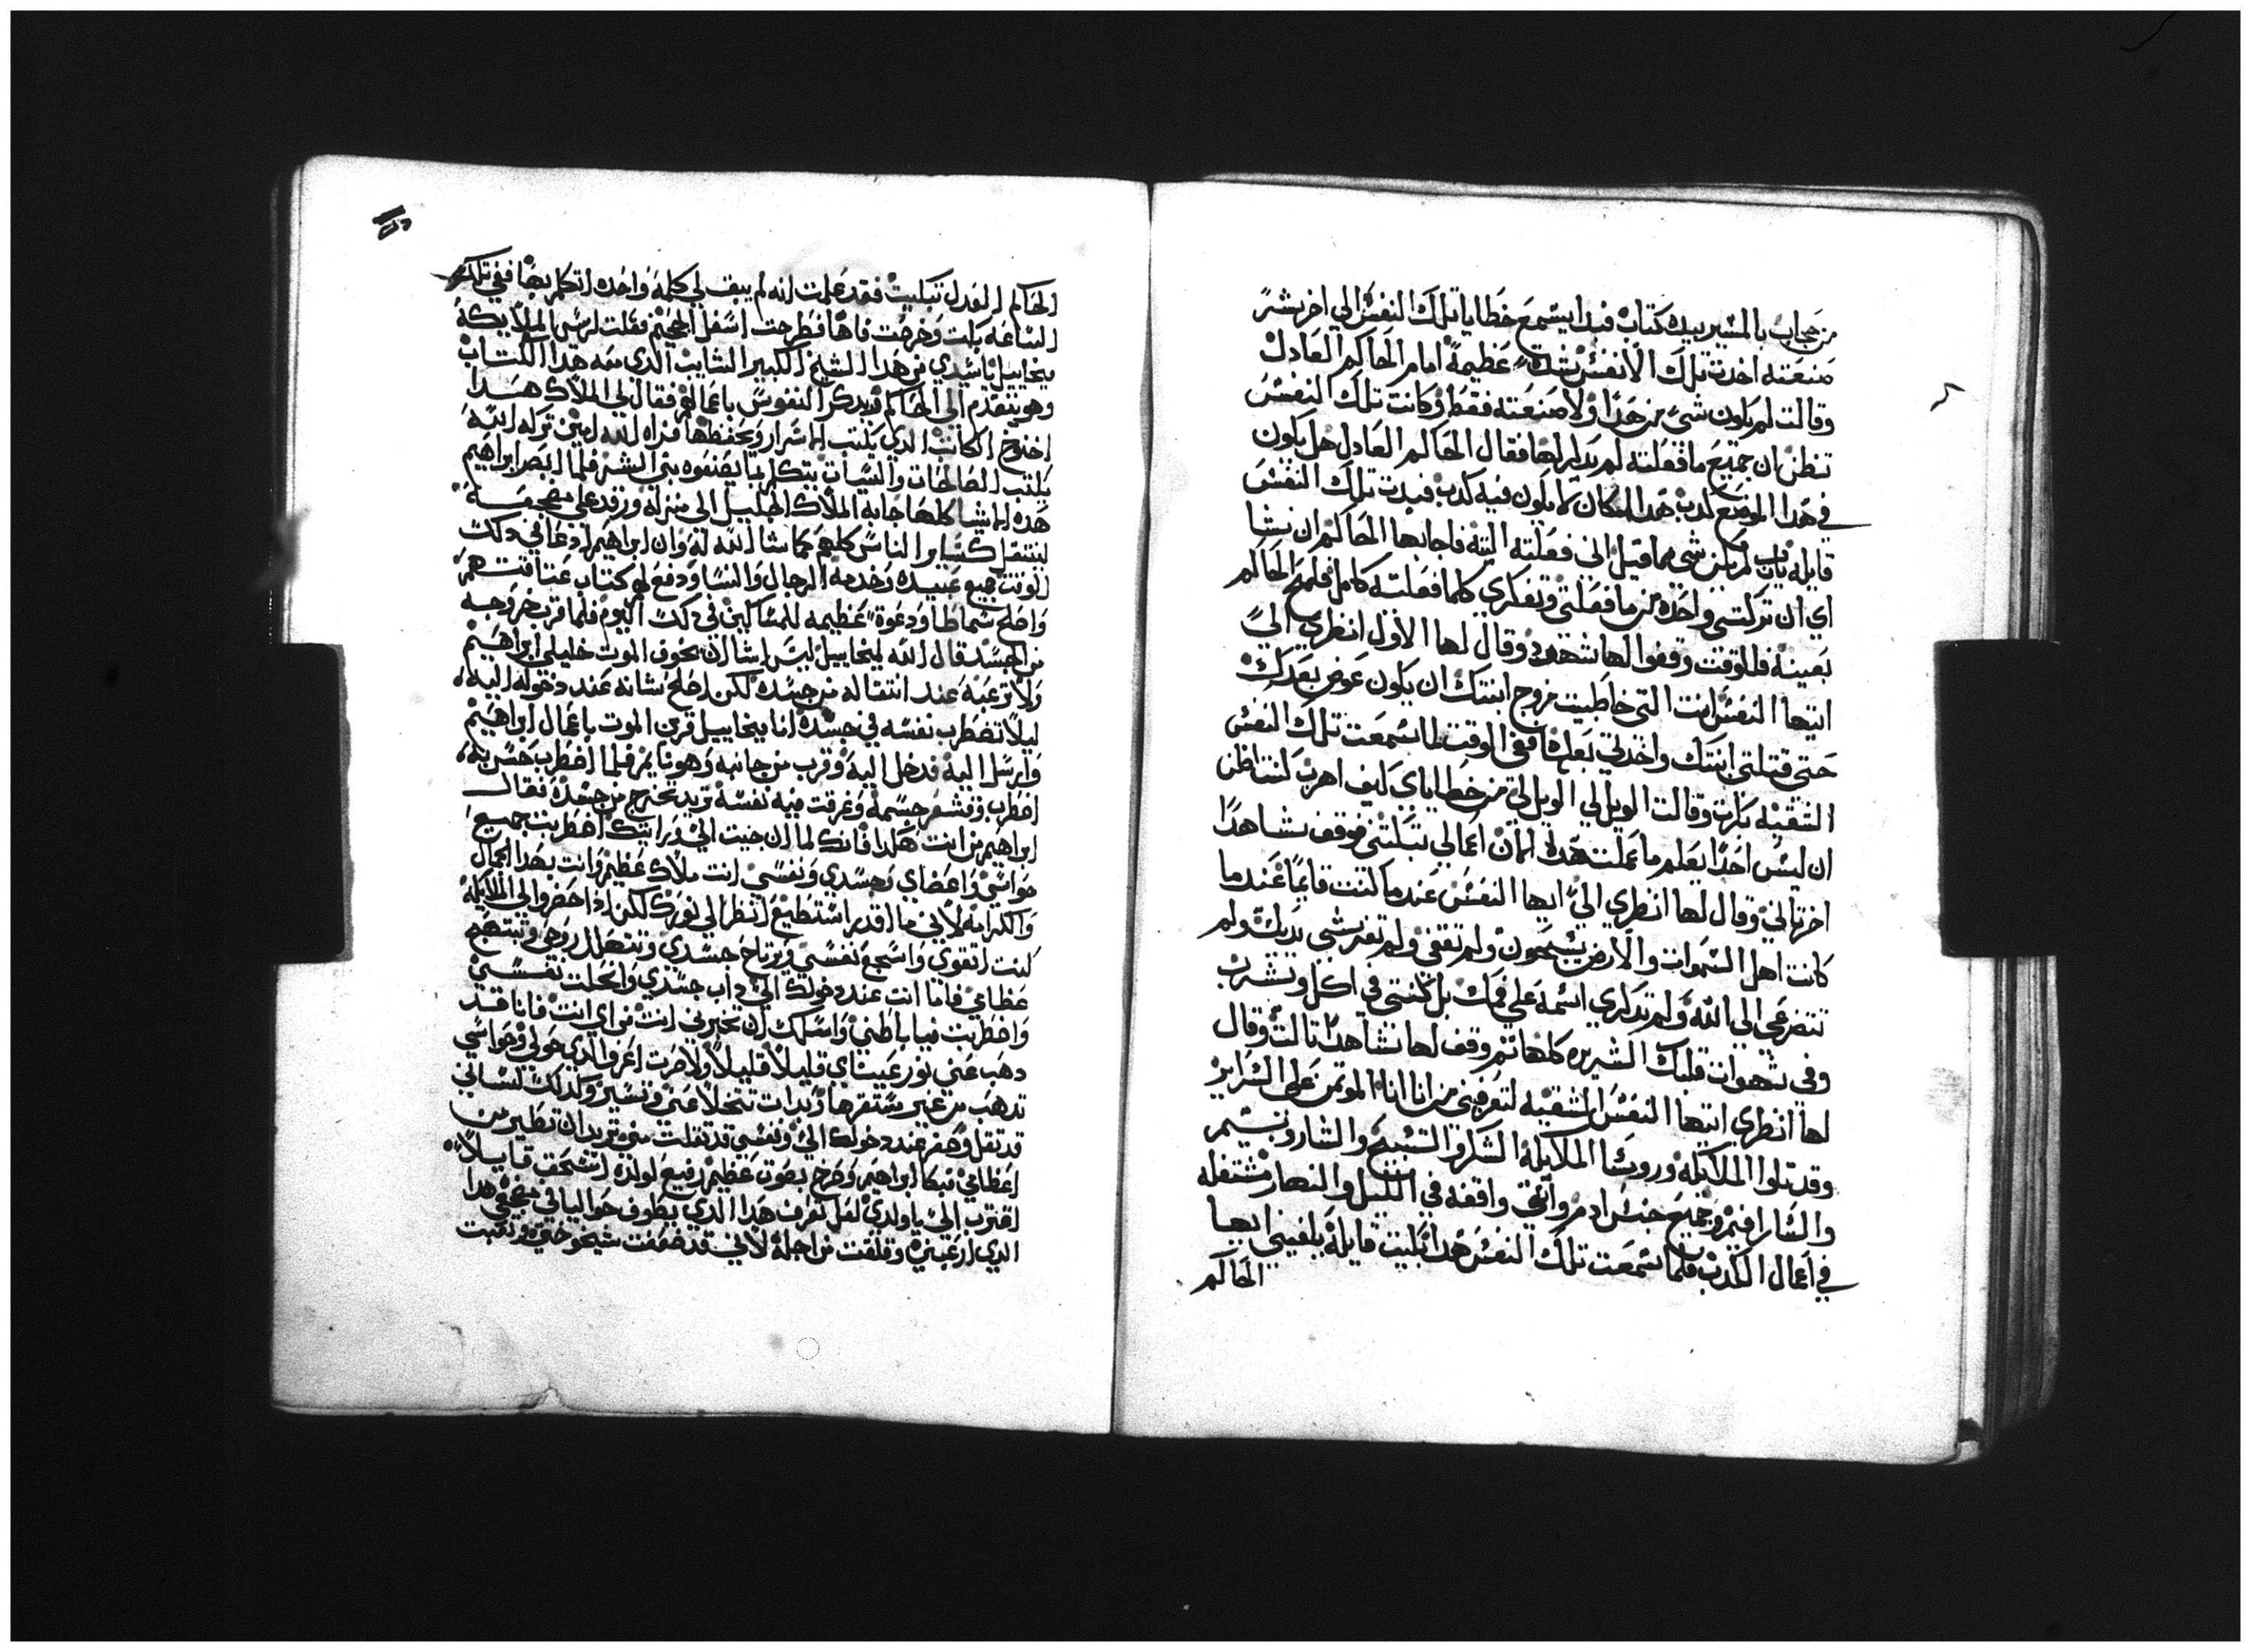 من حجاب بالستر بيده كتاب فبدا يسمع خطايا تلك النفس الي اخر شر
صنعته اخدت تلك الانفس بشك عظيمة امام الحاكم العادل
وقالت لم يكون شي من هدا ولا صنعته فقط وكانت تلك النفس
تظن ان جميع ما فعلته لم يدكر لها فقال الحاكم العادل هل يكون
في هدا الموضع كدب هدا المكان لا يكون فيه كدب فبدت تلك النفس
قايله يارب لم يكن شي مما قيل اني فعلته البته فاجابها الحاكم ان نشا
اي ان تركتي واحده من ما فعلتي وتفكري كلما فعلته كامل فلمح الحاكم
بعينه فللوقت وقفوا لها شهود وقال لها الاول انظري الي
ايتها النفس انت التي خاطبت زوج ابنتك ان يكون عوض بعدك
حتي قتلتي ابنتك واخدتي بعلها ففي الوقت لما سمعت تلك النفس
الشقيه بكت وقالت الويل لي الويل لي من خطاياي كيف اهرب كنت اظن
ان ليس احدا يعلم ما عملت هده الان اعمالي تبكتني فوقف شاهدا
اخر تاني وقال لها انظري الي ايها النفس عندما كنت قايما عندما
كانت اهل السموات والارض يسبحون ولم تقفي ولم تفرشي يديك ولم
تتضرعي الي الله ولم تدكري اسمه علي فمك بل كنتي في اكل وشرب
وفي شهوات قلبك الشريره كلها تم وقف لها شاهدا تالت وقال
لها انظري ايتها النفس الشقيه لتعرفيني من انا انا الموتمن علي السراير
وقد تلوا الملايكة وروسا الملايكة الشكر والتسبيح والشاروبيم
والسارافيم وجميع جنس ادم وانتي واقفه في الليل والنهار مشتغله
في اعمال الكدب فلما سمعت تلك النفس هدا بكيت قايلة يكفيني ايها
الحاكم
الحاكم العدل تبكيت فقد علمت انه لم يبق لي كلمه واحده اتكلم بها ففي تلك
الساعه بكت وخرجت فاها فطرحت اسفل الجحيم فقلت لريس الملايكة
ميخاييل يا سيدي من هدا الشيخ الكبير الشايب الدي معه هدا الكتاب
وهو يتقدم الي الحاكم ويدكر النفوس باعمالهم فقال لي الملاك هدا
اخنوخ الكاتب الدي يكتب الاسرار ويحفظها فراه الله امين تركه انه
يكتب الصالحات والسيات يتكلم بما يصنعوه بني البشر فلما ابصر ابراهيم
هده الاشيا كلها جابه الملاك الجليل الي منزله ورقد علي مضجعه
لينتقل كساير الناس كلهم كما شا الله له وان ابراهيم ادعا في دلك
الوقت جميع عبيده وخدمه الرجال والنسا ودفع لهم كتاب عتاقتهم
واصلح سماطا ودعوة عظيمه للمساكين في دلك اليوم فلما قرب خروجه
من الجسد قال الله لميخاييل ليس اشا ان يخوف الموت خليلي ابراهيم
ولا ترعبه عند انتقاله من جسده لكن اصلح شانه عند دخوله اليه
ليلا تضطرب نفسه في جسده انا ميخاييل قرين الموت باعمال ابراهيم
وارسل اليه فدخل اليه وقرب من جانبه وهو نايم فلما اضطرب حس به
اضطرب وقشعر جسمه وغرقت فيه نفسه تريد تخرج من جسده فقال
ابراهيم من انت هكدا فانك لما ان جيت الي ورايتك اضطربت جميع
حواسي واعضاي وجسدي ونفسي انت ملاك عظيم وانت بهدا الجمال
والكرامه لاني ما اقدر استطيع انظر الي نورك لكن ادا حضروا الي الملايكة
كنت اتقوي واسجع نفسي ويرتاح جسدي وتتهلل روحي وتبتهج
عظامي فاما انت عند دخولك الي داب جسدي وانحلت نفسي
واضطربت فيا باطني واسلك ان تخبرني انت من اي انت فانا قد
دهب عني نور عيناي قليلا قليلا ولا صرت اعرف الدي حولي وحواسي
تدهب من غير مستقرها وبدات تنحلا عني وتسير وكدلك لساني
قد تقل وصغر عند دخولك الي ونفسي قد تقلت مني تريد ان تطير من
اعظامي فبكا ابراهيم وصرخ بصوت عظيم رفيع لولده اسحق قايلا
اقترب الي يا ولدي لعل تعرف هدا الدي يطوف حوالينا في مضجعي هدا
الدي ارعبني وقلقت من اجله لاني قد ضعفت شيخوختي وتعبت